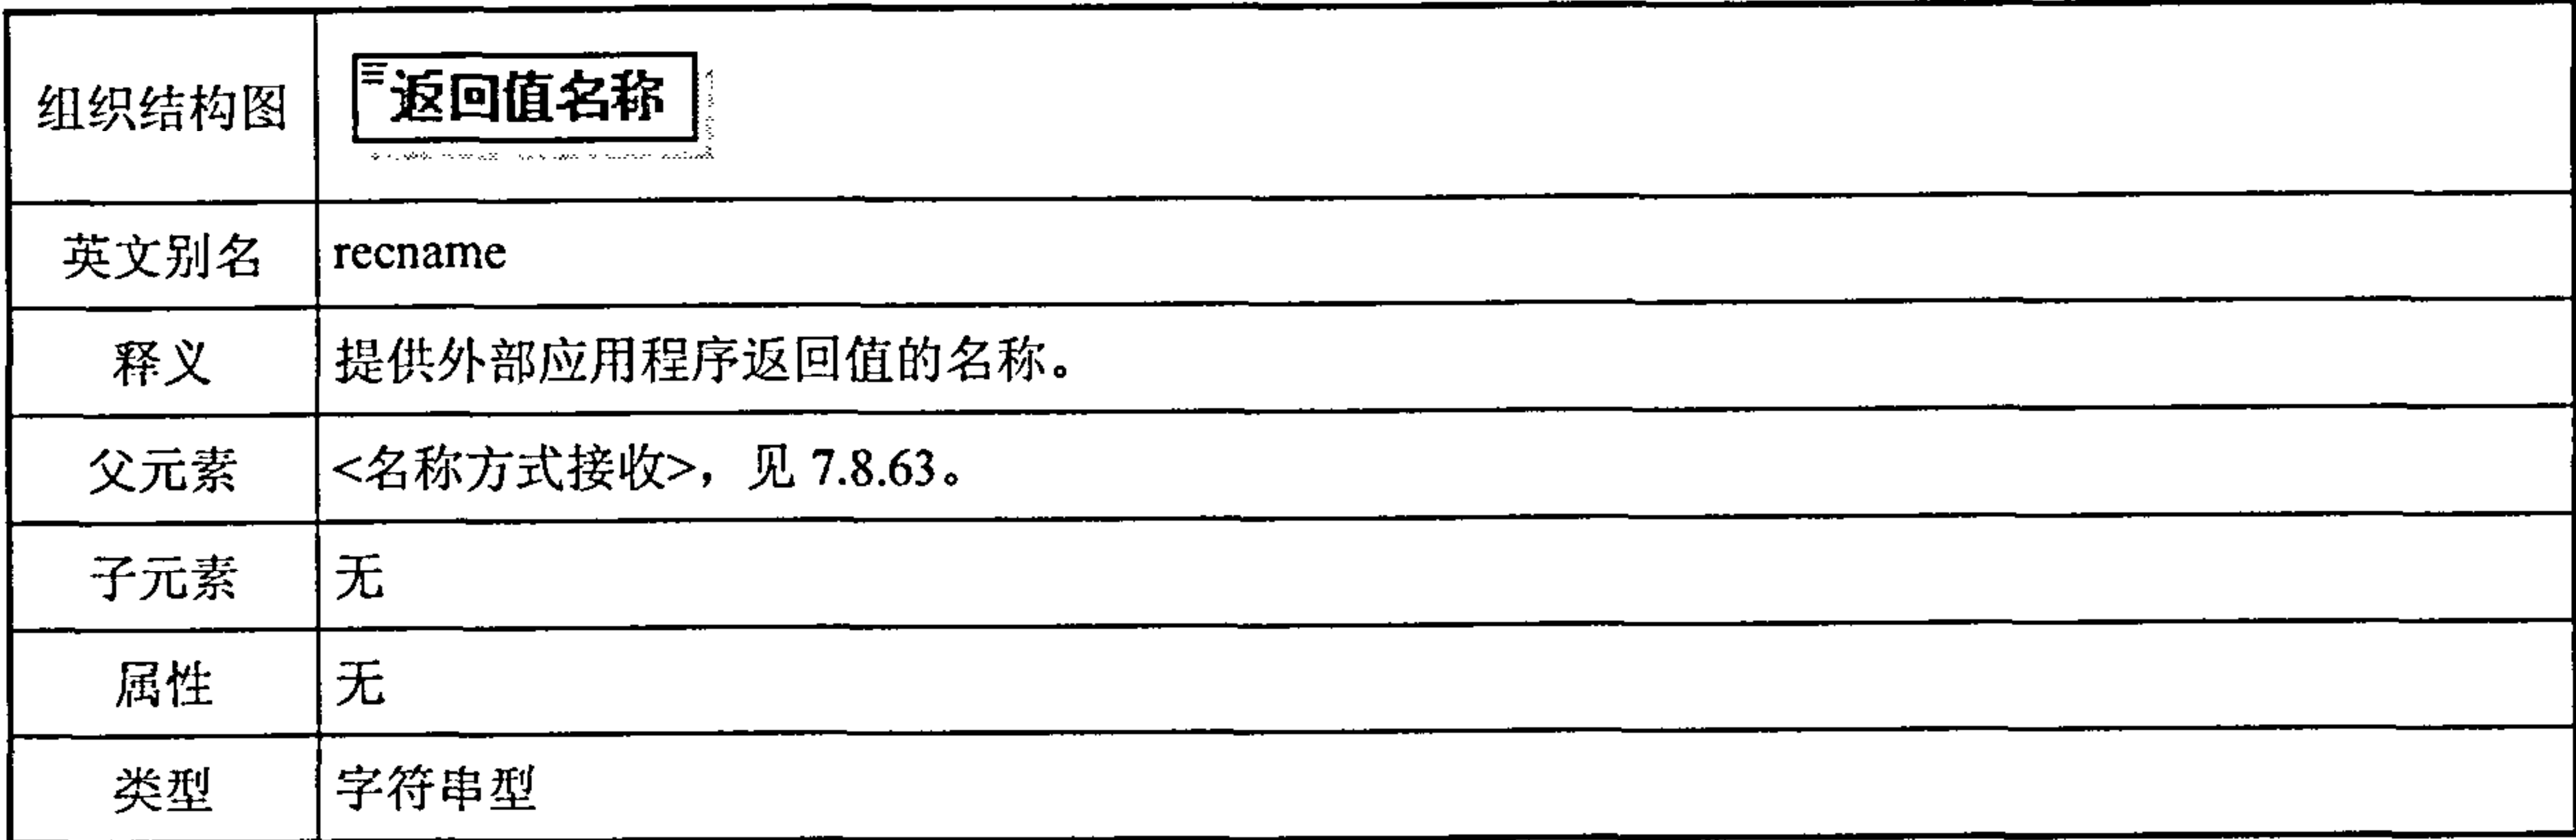 组织结构图 返回值名称
英文别名 recname
释义 提供外部应用程序返回值的名称。
父元素 <名称方式接收>，见 7.8.63。
子元素 无
属性 无
类型 字符串型